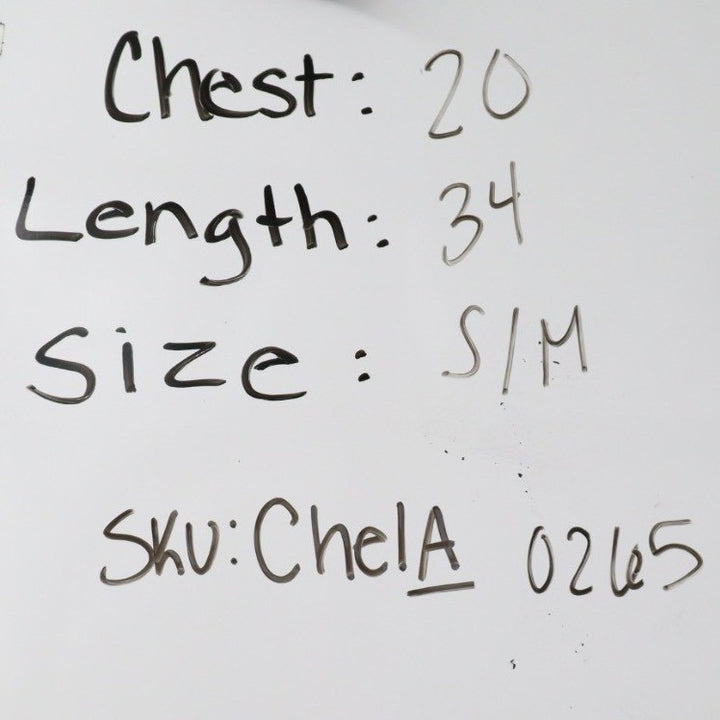 Chest: 20
Length: 34
Size: S/M
SKU: ChelA 0265